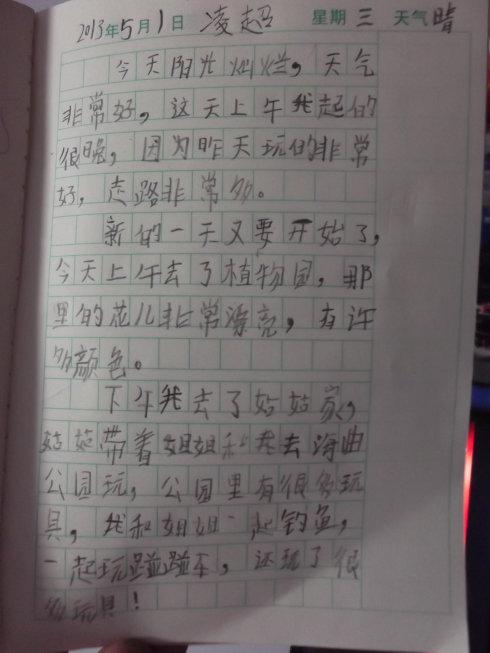 2013年5月1日 凌超 星期三 天气晴
今天阳光灿烂，天气
非常好，这天上午我起的
很晚，因为昨天玩的非常
好，走路非常多。
新的一天又要开始了，
今天上午去了植物园，那
里的花儿非常漂亮，有许
多颜色。
下午我去了姑姑家，
姑姑带着姐姐和我去海曲
公园玩，公园里有很多玩
具，我和姐姐一起钓鱼，
一起玩碰碰车，还玩了很
多玩具！